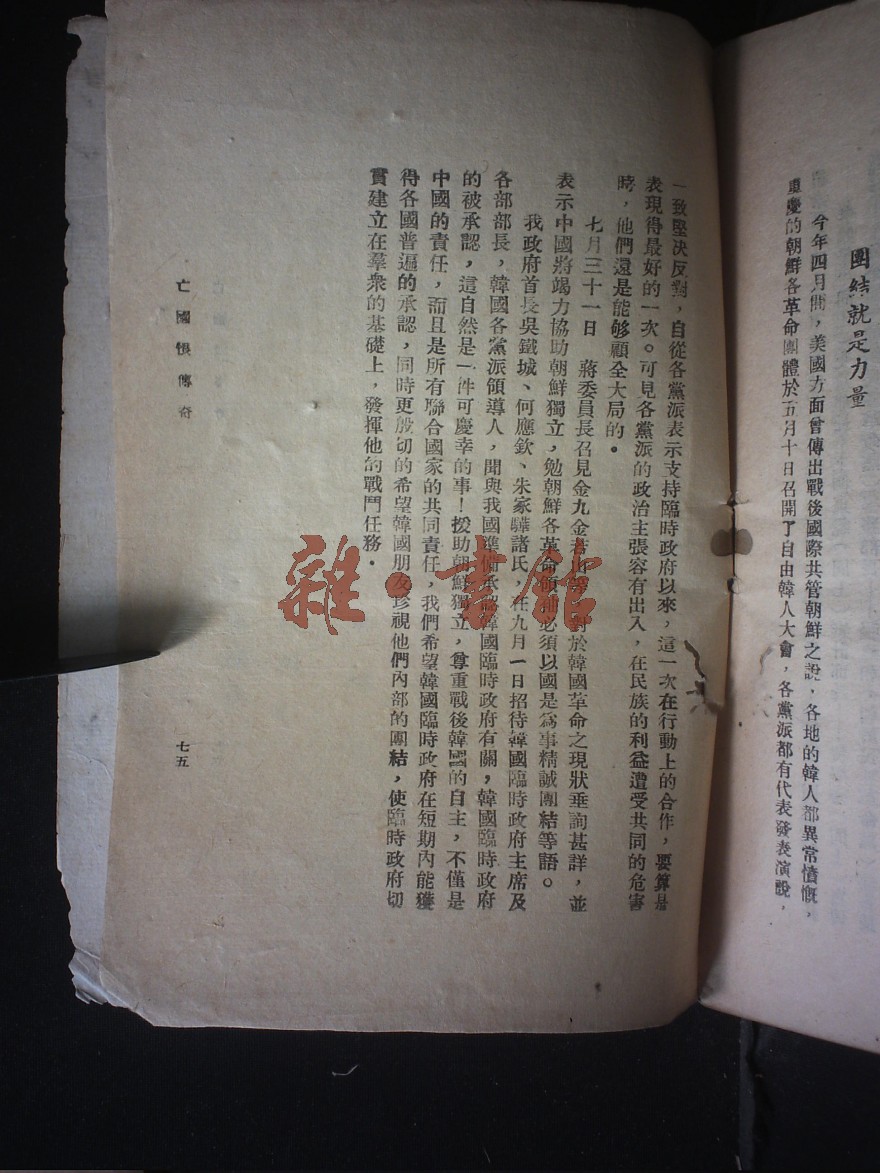 團結就是力量
今年四月間，美國方面曾傳出戰後國際共管朝鮮之說，各地的韓人都異常憤慨，
重慶的朝鮮各革命團體於五月十日召開了自由韓人大會，各黨派都有代表發表演說，
一致堅決反對，自從各黨派表示支持臨時政府以來，這一次在行動上的合作，要算是
表現得最好的一次。可見各黨派的政治主張容有出入，在民族的利益遭受共同的危害
時，他們還是能够顧全大局的。
七月三十一日 蔣委員長召見金九金若山等，對於韓國革命之現狀垂詢甚詳，並
表示中國將竭力協助朝鮮獨立，勉朝鮮各革命領袖必須以國是爲事精誠團結等語。
我政府首長吳鐵城、何應欽、朱家驊諸氏，在九月一日招待韓國臨時政府主席及
各部部長，韓國各黨派領導人，聞與我國準備承認韓國臨時政府有關，韓國臨時政府
的被承認，這自然是一件可慶幸的事！援助朝鮮獨立，尊重戰後韓國的自主，不僅是
中國的責任，而且是所有聯合國家的共同責任，我們希望韓國臨時政府在短期內能獲
得各國普遍的承認，同時更殷切的希望韓國朋友珍視他們內部的團結，使臨時政府切
實建立在羣衆的基礎上，發揮他的戰鬥任務。
亡國恨傳奇
七五
雜·書館